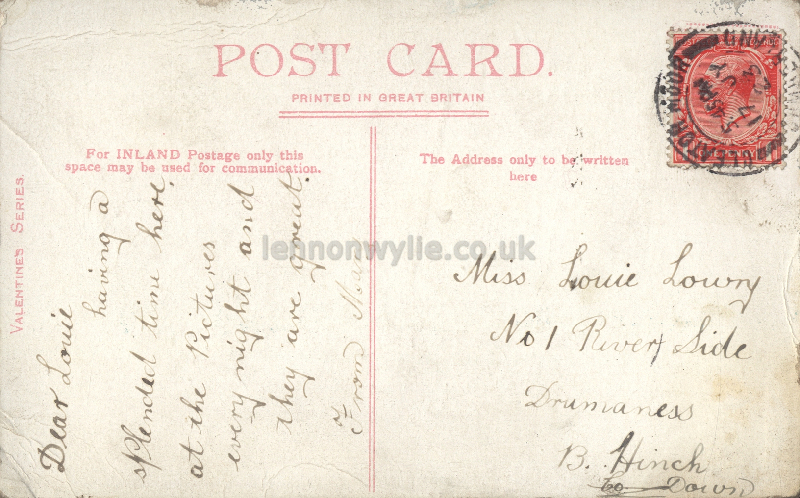 POST CARD.
PRINTED IN GREAT BRITAIN
For INLAND Postage only this
space may be used for communication.
The Address only to be written
here
VALENTINES SERIES.
Dear Louie
having a
splended time here,
at the Pictures
every night and
they are great.
From
lennonwylie.co.uk
Miss Louie Lowry
No 1 River Side
Drumaness
B. Hinch
Co Down